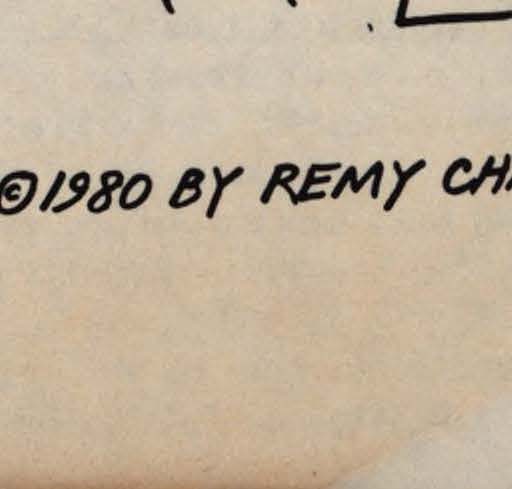 ©1980 BY REMY